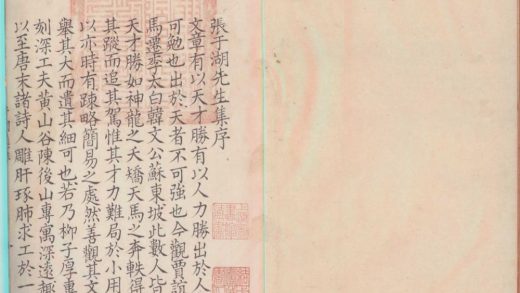 張于湖先生集序
文章有以天才勝有以人力勝出於人
可勉也出於天者不可強也今觀賈誼
馬遷李太白韓文公蘇東坡此數人皆
天才勝如神龍之夭矯天馬之奔軼得
其蹤而追其駕惟其才力難局於小用
以亦時有疎略簡易之處然善觀其文
舉其大而遺其細可也若乃柳子厚專
刻深工夫黃山谷陳後山專寓深遠趣
以至唐末諸詩人雕肝琢肺求工於一